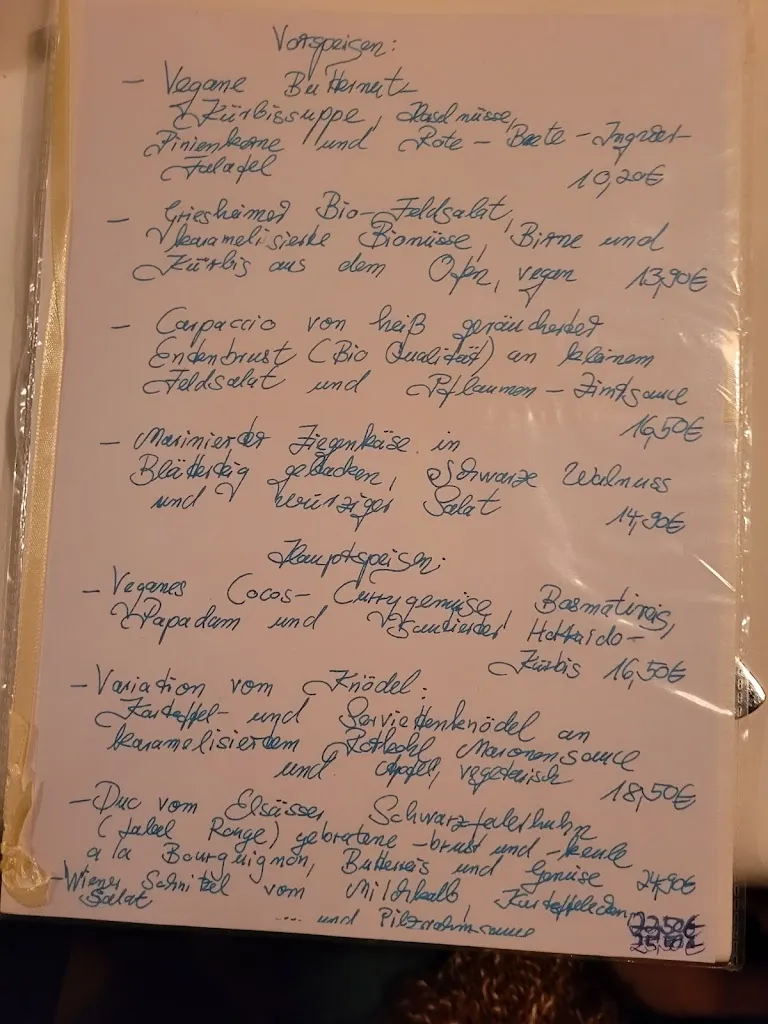 Vorspeisen:
- Vegane Butternut
Kürbissuppe, Haselnüsse,
Pinienkerne und Rote-Beete-Ingwer-
Falafel
10,20€
- Griesheimer Bio-Feldsalat,
karamelisierte Bionüsse, Birne und
Kürbis aus dem Ofen, vegan 13,90€
- Carpaccio von heiß geräucherter
Entenbrust (Bio Qualität) an kleinem
Feldsalat und Pflaumen-Zimtsauce
16,50€
- Marinierter Ziegenkäse in
Blätterteig gebacken, Schwarze Walnuss
und würziger Salat
14,90€
Hauptspeisen:
- Veganes Cocos-Currygemüse, Basmatireis,
Papadam und sautierter Hokkaido-
Kürbis 16,50€
- Variation vom Knödel:
Kartoffel- und Serviettenknödel an
karamelisiertem Rotkohl, Maronensauce
und Apfel, vegetarisch
18,50€
- Duo vom Elsässer Schwarzfederhuhn
(Label Rouge) gebratene -brust und -keule
a la Bourguignon, Butterreis und Gemüse 24,90€
- Wiener Schnitzel vom Milchkalb, Kartoffel
Salat
22,50€
... und Pilzrahmsauce